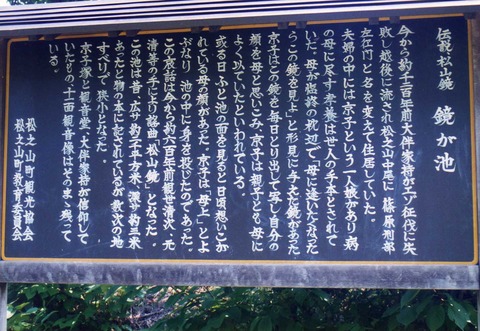 伝説松山鏡 鏡が池
今から約千二百年前大伴家持が工ゾ征伐に失
敗し越後に流され松之山中尾に篠原刑部
左衛門と名を変えて住居していた。
夫婦の中には京子という一人娘があり病
の母に尽す孝養は世人の手本とされて
いた。母が臨終の枕辺で「母に逢いたくなった
らこの鏡を見よ」と形見に与えた鏡があった
京子はこの鏡を毎日とり出して写る自分の
顔を母と思いこみ、京子は親子とも母に
よく似ていたといわれている。
或る日ふと池の面を見ると日頃想いこが
れている母の顔があった。京子は「母上」とよ
ぶなり池の中に身を投じたのであった。
この哀話は今から約六百年前観世清次、元
清等の手により謡曲「松山鏡」となった。
この池は昔、広サ約二千平米、深サ約三米
あったと物の本に記されているが数次の地
すべりで狭小となった。
京子塚と観音堂、大伴家持が信仰して
いたもの十一面観音像はそのまゝ残って
いる。
松之山町観光協会
松之山町教育委員会